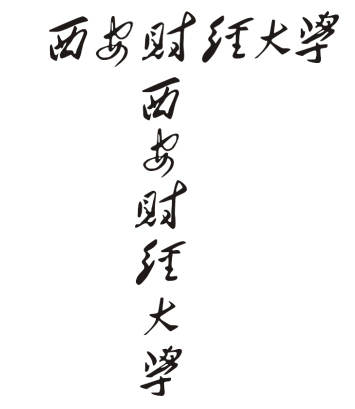 西安财经大学
西安财经大学